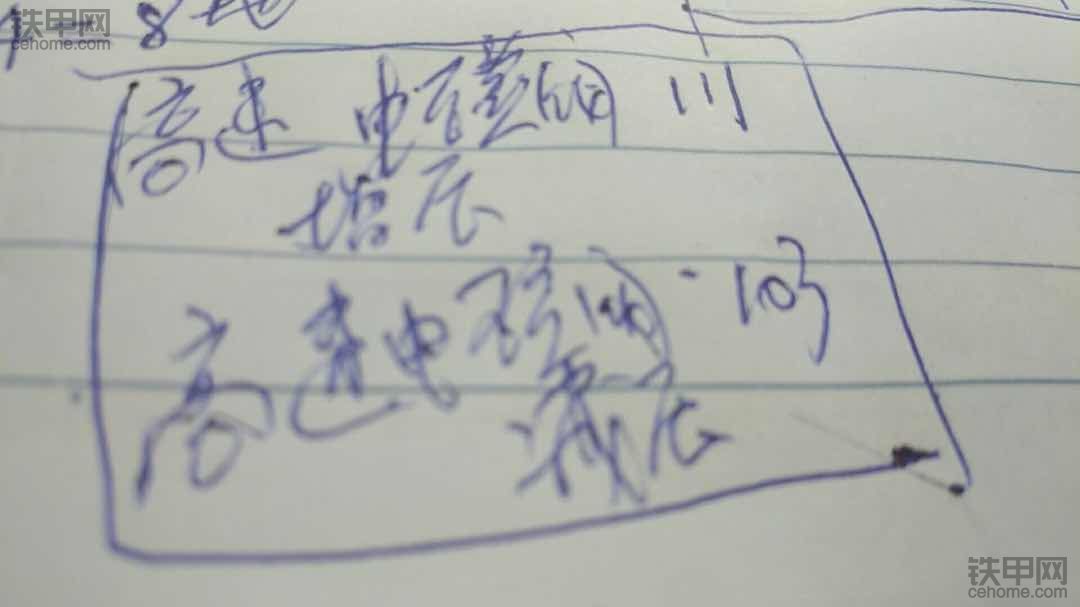 铁甲网
cehome.com
高速 电磁阀 111
增压
高速电磁阀·103
减压
铁甲网
cehome.com